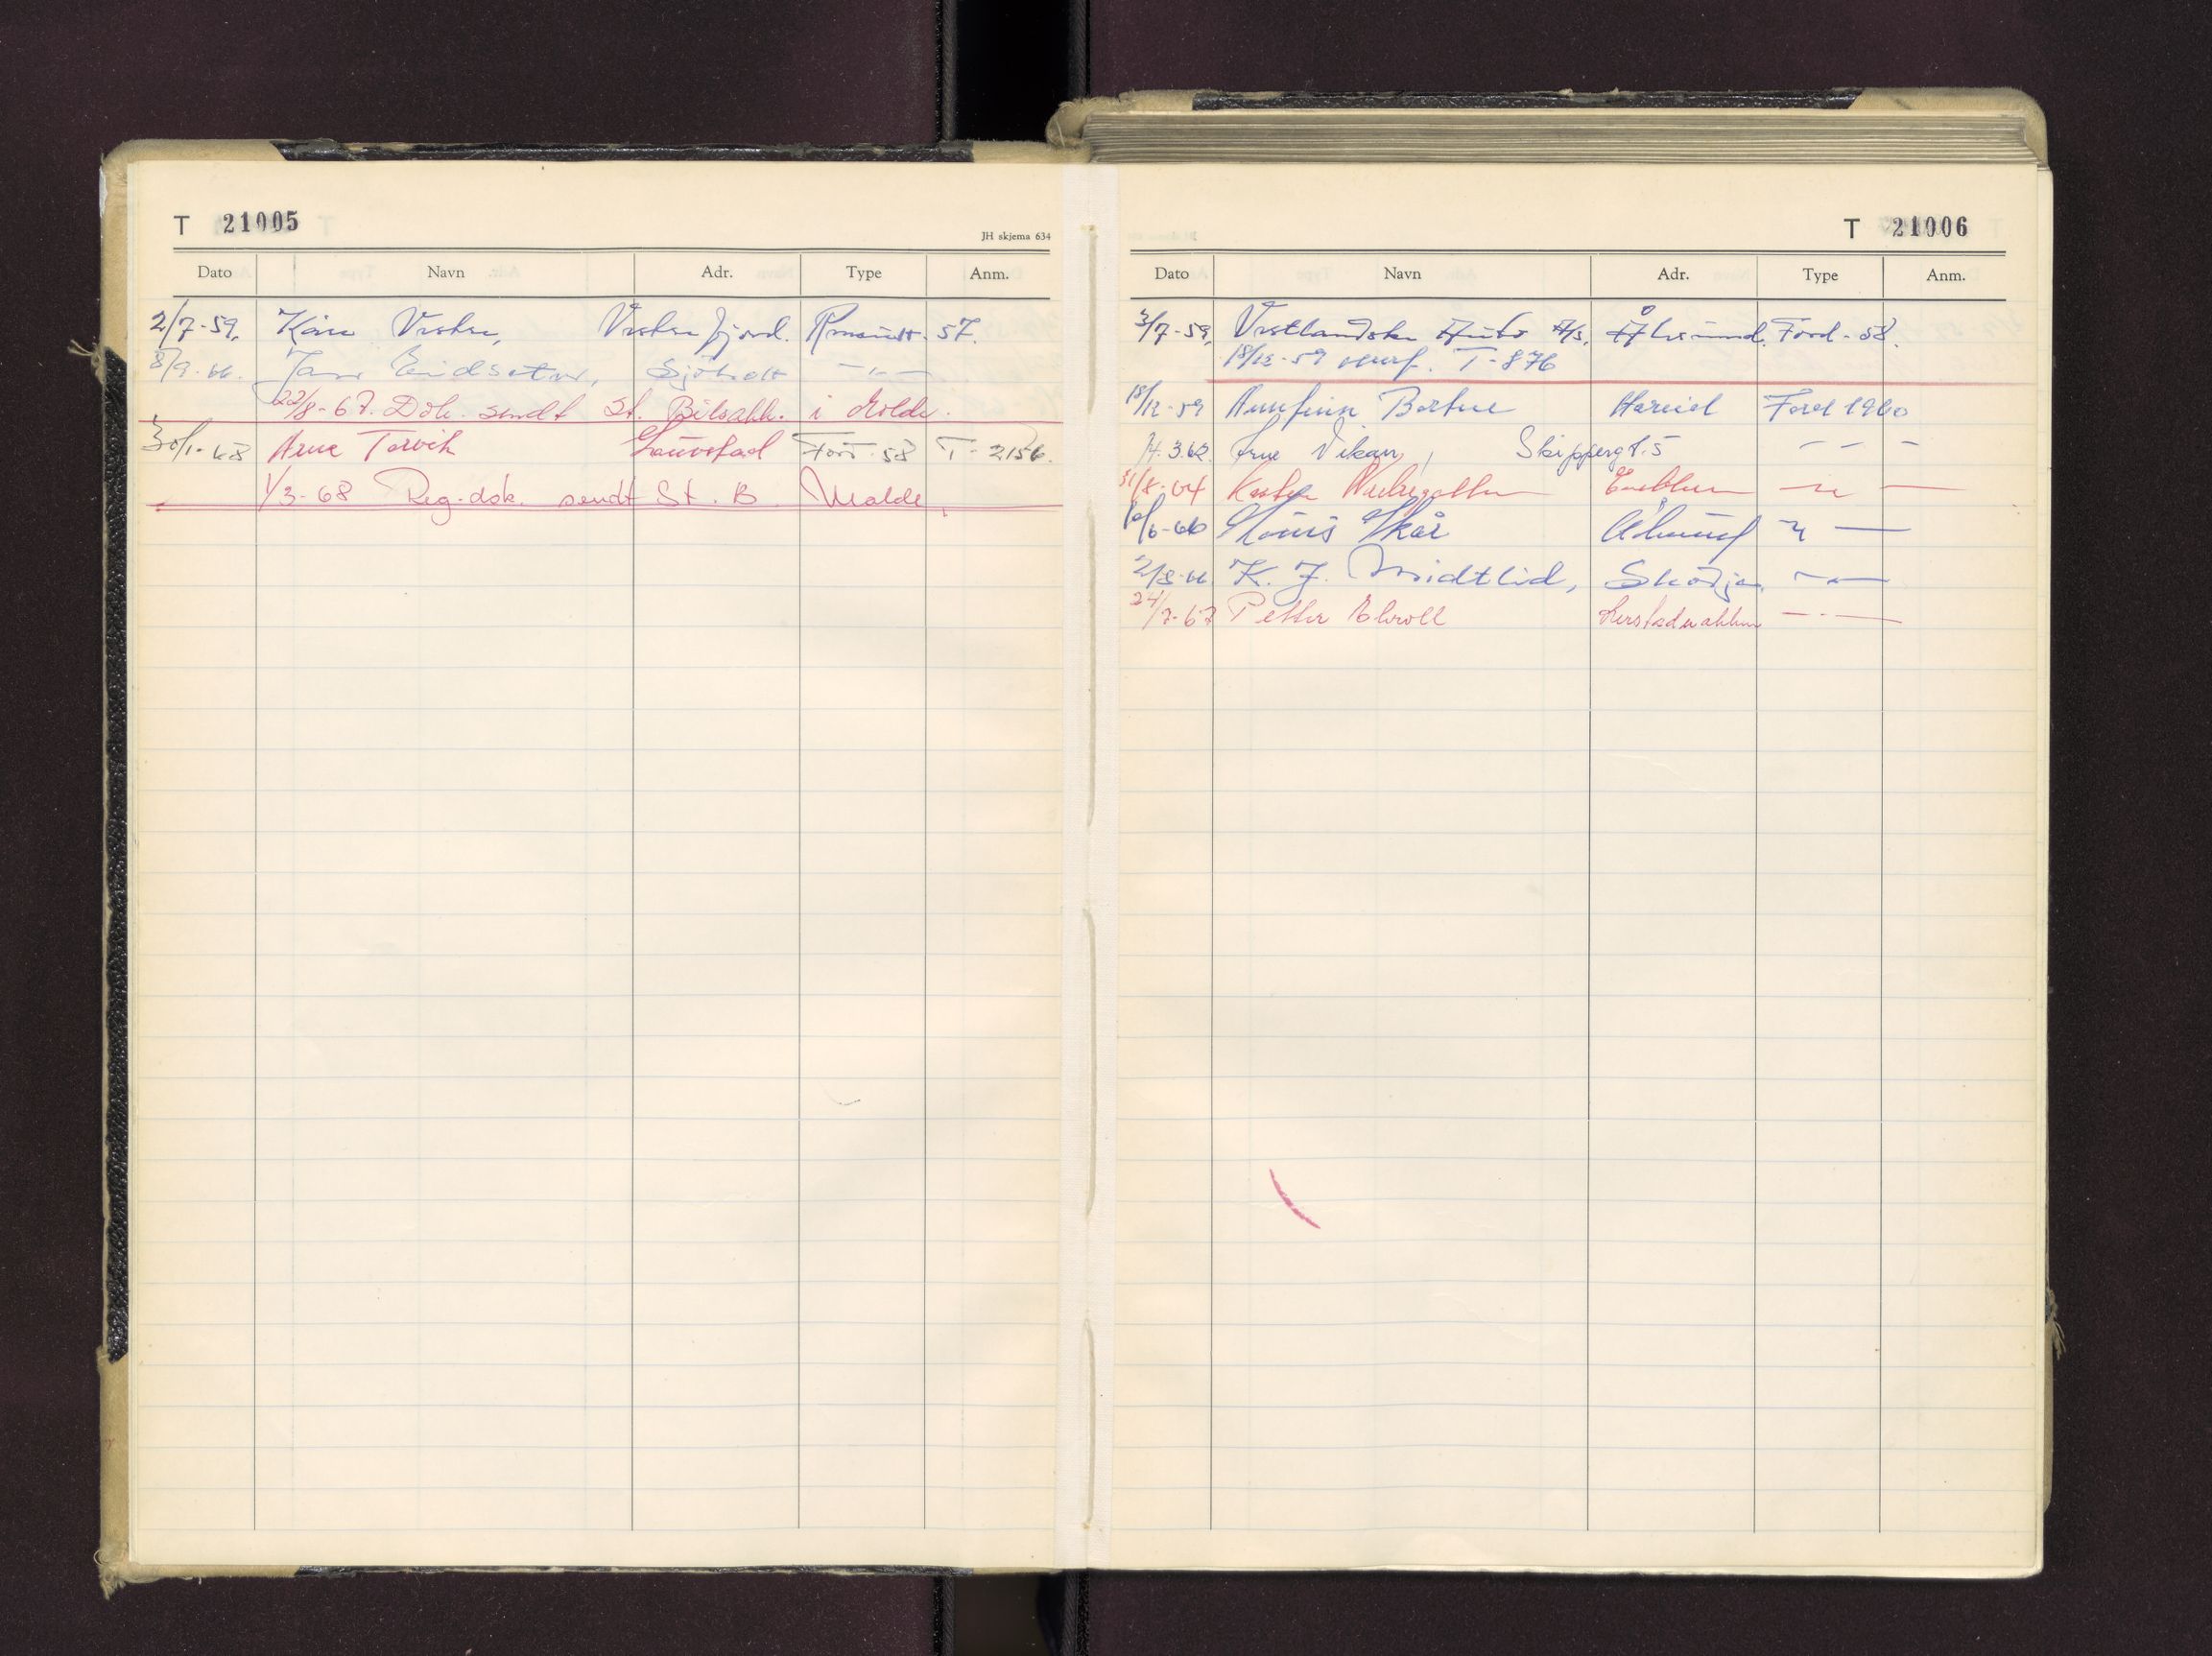 T 21005
JH skjema 634
Dato Navn Adr. Type Anm.
2/7-59. Kåre Vestre, Vestrefjord. 57.
8/9-66. Jan Eidsetor, Sjøholt —"—
22/8-67. Dok. sendt St. Bilsakk. i Molde.
30/1-68 Arne Torvik Lauvstad Ford-58 T-2156.
1/3-68 Reg.dok. sendt St. B. Molde.
T 21006
Dato Navn Adr. Type Anm.
3/7-59, Vestlandske Auto A/s, Ålesund. Ford-58.
18/12-59 T-876
18/12-59 Annfinn Hareid Ford 1960
3.62. Arne Vikan, Skippergt. 5 — — —
31/8-64 —"—
/6-66 Louis Skår Ålesund —"—
2/8-66 K. J. Midtlid, Skodje —"—
24/7-67 Petter — " —